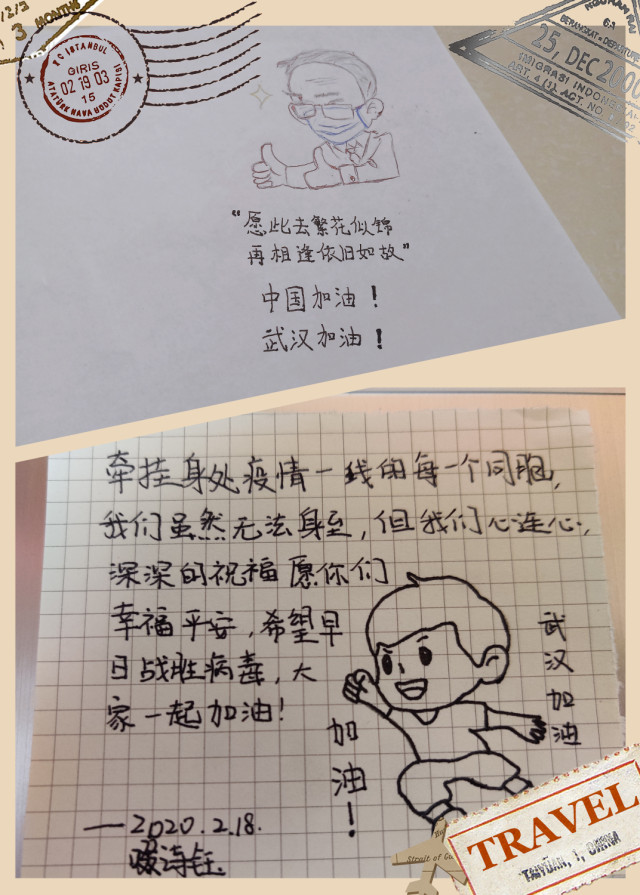 3 MONTHS
ISTANBUL
GIRIS
02 19 03
15
ATATÜRK HAVA HUDUT KAPISI
25. DEC 2000
IMIGRASI INDONESIA
ART. 4 (1). ACT. NO.
“愿此去繁花似锦
再相逢依旧如故”
中国加油！
武汉加油！
牵挂身处疫情一线的每一个同胞,
我们虽然无法身至,但我们心连心,
深深的祝福愿你们
幸福平安,希望早
日战胜病毒,大
家一起加油!
加油！
武汉加油
——2020.2.18.
TRAVEL
Strait of